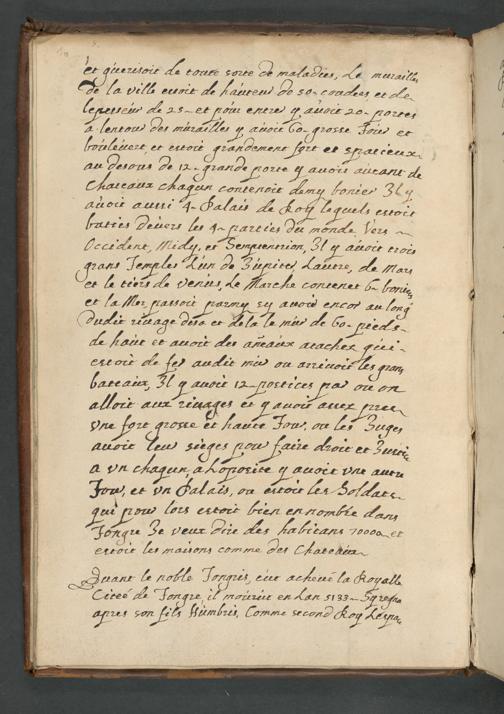 et guerisoit de toute sorte de maladies, Le murailles
de la ville estoit de hauteur de 50 coudees et de
lepesseur de 25 et pour entre y avoit 20 portes
a lentour des murailles y avoit 60 grosse Tour et
boulevert et estoit grandement fort et spatieux
au desous de 12 grande porte y avoit autant de
Chateaux chaqun contenoit demy bonier Il y
avoit aussi 4 Palais de Roy lequels estoit
baties devers les 4 parties du monde vers
Occident, Midy, et Septentrion, Il y avoit trois
grans Temples Lun de Jupiter, Lautre, de Mars
et le tiers de venus, Le Marche contenet 6 boniers
et la Mer passoit parmy, y avoit encor au long
dudit rivage desa et dela le mur de 60 pieds
de haut et avoit des aneaux atachez qui
estoit de fer audit mur ou arrivoit les grans
bateaux, Il y avoit 12 postices par ou on
alloit aux rivages et y avoit asez pres
vne fort grosse et haute Tour, ou les Juges
avoit leur sieges pour faire droit et Justice
a vn chaqun, a Loposite y avoit vne autre
Tour, et vn Palais, ou estoit les Soldats
qui pour lors estoit bien en nombre dans
Tongre Je veux dire des habitans 70000 et
estoit les maisons comme des Chateaux

Quant le noble Tongris, eut achevé la Royalle
Citeé de Tongre, il mourut en Lan 5133 regna
apres son fils Humbris, Comme second Roy